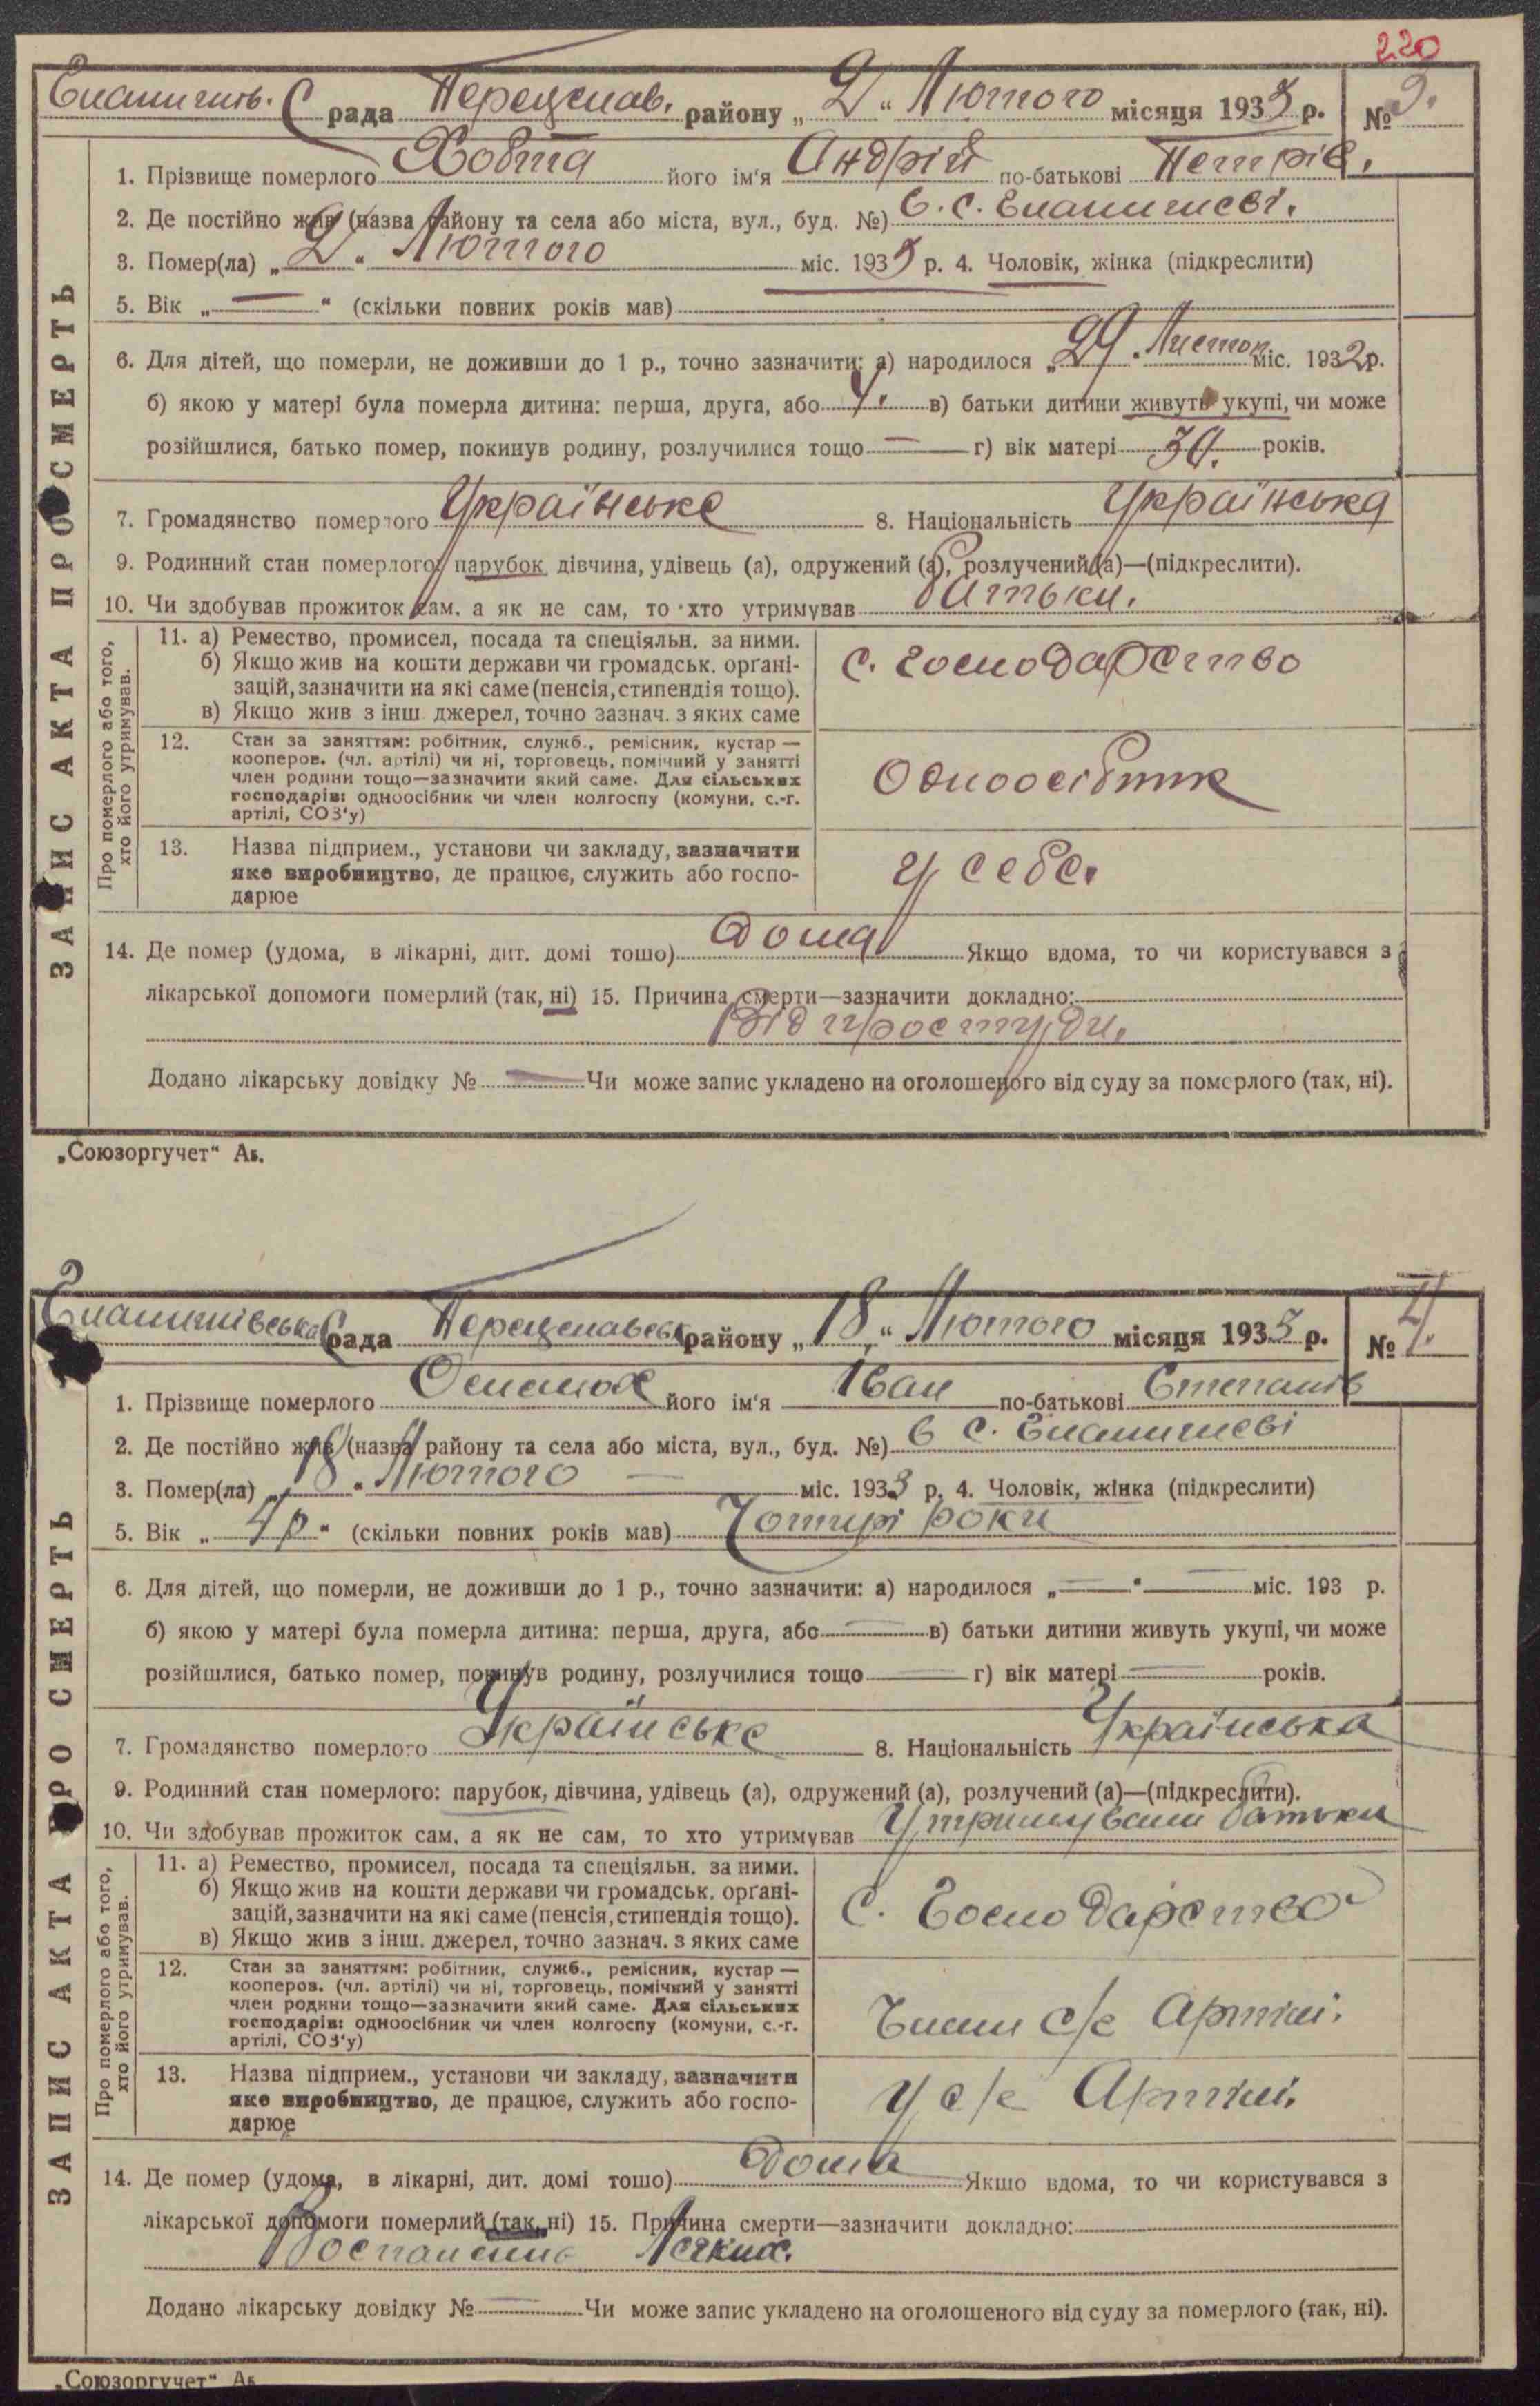 220
Єланитків. С рада Переяслав. району „2“ Лютого місяця 1933 р. № 3.
ЗАПИС АКТА ПРО СМЕРТЬ
1. Прізвище померлого Хобта його ім‘я Андрій по-батькові Петрів.
2. Де постійно жив (назва району та села або міста, вул., буд. №) в. с.
3. Помер(ла) „2“ Лютого міс. 1933 р. 4. Чоловік, жінка (підкреслити)
5. Вік „—“ (скільки повних років мав)
6. Для дітей, що померли, не доживши до 1 р., точно зазначити: а) народилося „29“ Листоп міс. 1932 р.
б) якою у матері була померла дитина: перша, друга, або 4. в) батьки дитини живуть укупі, чи може
розійшлися, батько помер, покинув родину, розлучилися тощо — г) вік матері 39. років.
7. Громадянство померлого Українське 8. Національність Українська
9. Родинний стан померлого: парубок, дівчина, удівець (а), одружений (а), розлучений (а)—(підкреслити).
10. Чи здобував прожиток сам, а як не сам, то хто утримував батьки.
Про померлого або того, хто його утримував.
11. а) Ремество, промисел, посада та спеціяльн. за ними.
б) Якщо жив на кошти держави чи громадськ. орґані-
зацій, зазначити на які саме (пенсія, стипендія тощо).
в) Якщо жив з інш. джерел, точно зазнач. з яких саме
с. господарство
12. Стан за заняттям: робітник, служб., ремісник, кустар —
кооперов. (чл. артілі) чи ні, торговець, помічний у занятті
член родини тощо—зазначити який саме. Для сільських
господарів: одноосібник чи член колгоспу (комуни, с.-г.
артілі, СОЗ‘у)
Одноосібник
13. Назва підприєм., установи чи закладу, зазначити
яке виробництво, де працює, служить або госпо-
дарює
у себе.
14. Де помер (удома, в лікарні, дит. домі тощо) Дома Якщо вдома, то чи користувався з
лікарської допомоги померлий (так, ні) 15. Причина смерти—зазначити докладно:
Від простуди.
Додано лікарську довідку № — Чи може запис укладено на оголошеного від суду за померлого (так, ні).
„Союзоргучет“ Аб.
С рада Переяславськ району „18“ Лютого місяця 1933 р. № 4.
ЗАПИС АКТА ПРО СМЕРТЬ
1. Прізвище померлого його ім‘я Іван по-батькові Степанів
2. Де постійно жив (назва району та села або міста, вул., буд. №) в с.
3. Помер(ла) „18“ Лютого — міс. 1933 р. 4. Чоловік, жінка (підкреслити)
5. Вік „4р“ (скільки повних років мав) Чотирі роки
6. Для дітей, що померли, не доживши до 1 р., точно зазначити: а) народилося „—“ — міс. 193 р.
б) якою у матері була померла дитина: перша, друга, або — в) батьки дитини живуть укупі, чи може
розійшлися, батько помер, покинув родину, розлучилися тощо — г) вік матері — років.
7. Громадянство померлого Українське 8. Національність Українська
9. Родинний стан померлого: парубок, дівчина, удівець (а), одружений (а), розлучений (а)—(підкреслити).
10. Чи здобував прожиток сам, а як не сам, то хто утримував Утримували батьки
Про померлого або того, хто його утримував.
11. а) Ремество, промисел, посада та спеціяльн. за ними.
б) Якщо жив на кошти держави чи громадськ. орґані-
зацій, зазначити на які саме (пенсія, стипендія тощо).
в) Якщо жив з інш. джерел, точно зазнач. з яких саме
С. Господарство
12. Стан за заняттям: робітник, служб., ремісник, кустар —
кооперов. (чл. артілі) чи ні, торговець, помічний у занятті
член родини тощо—зазначити який саме. Для сільських
господарів: одноосібник чи член колгоспу (комуни, с.-г.
артілі, СОЗ‘у)
Члени с/г Артілі.
13. Назва підприєм., установи чи закладу, зазначити
яке виробництво, де працює, служить або госпо-
дарює
У с/г Артілі.
14. Де помер (удома, в лікарні, дит. домі тощо) Дома Якщо вдома, то чи користувався з
лікарської допомоги померлий (так, ні) 15. Причина смерти—зазначити докладно:
Воспаленнє Легких.
Додано лікарську довідку № — Чи може запис укладено на оголошеного від суду за померлого (так, ні).
„Союзоргучет“ Аб